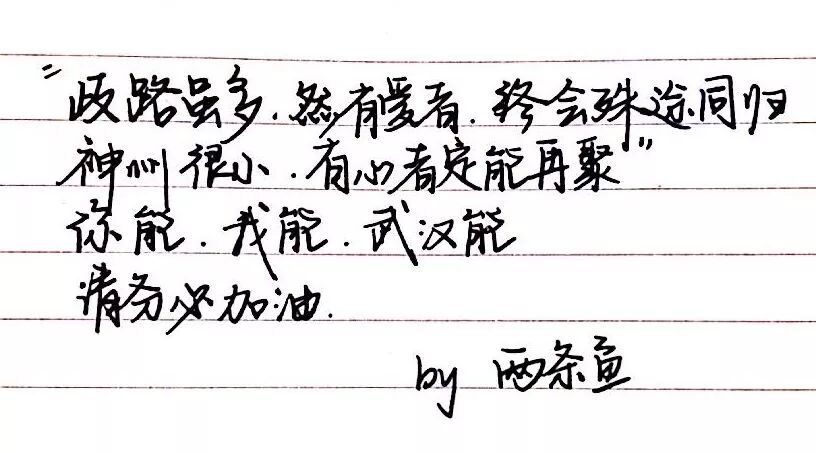 "歧路虽多.然有爱者.终会殊途同归
神州很小.有心者定能再聚"
你能.我能.武汉能
请务必加油.
by 两条鱼